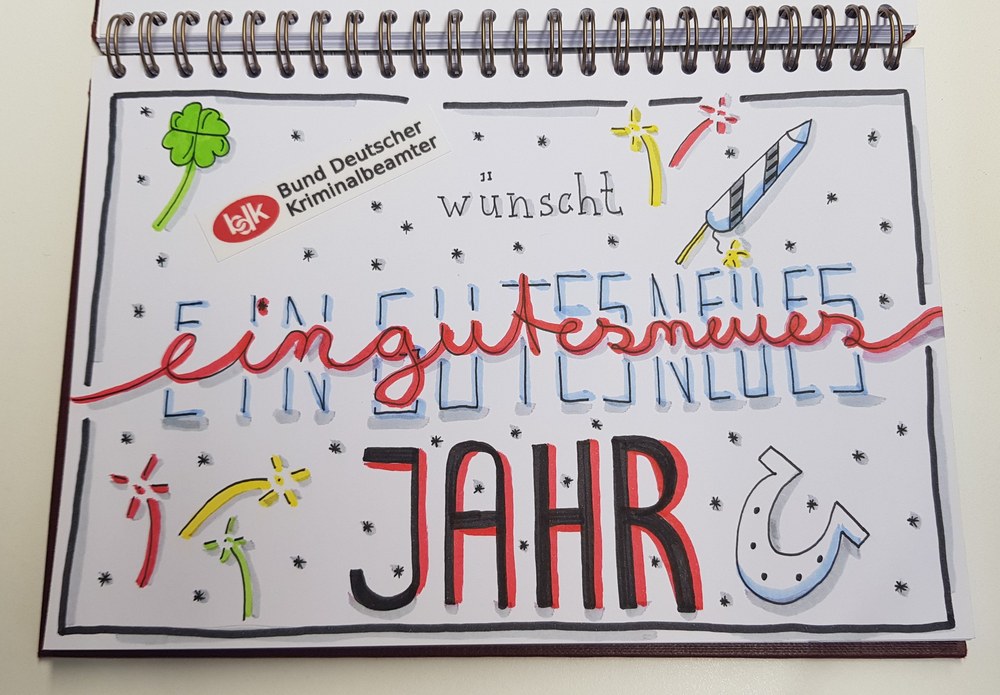 bdk
Bund Deutscher
Kriminalbeamter
wünscht
EIN GUTES NEUES
ein gutes neues
JAHR